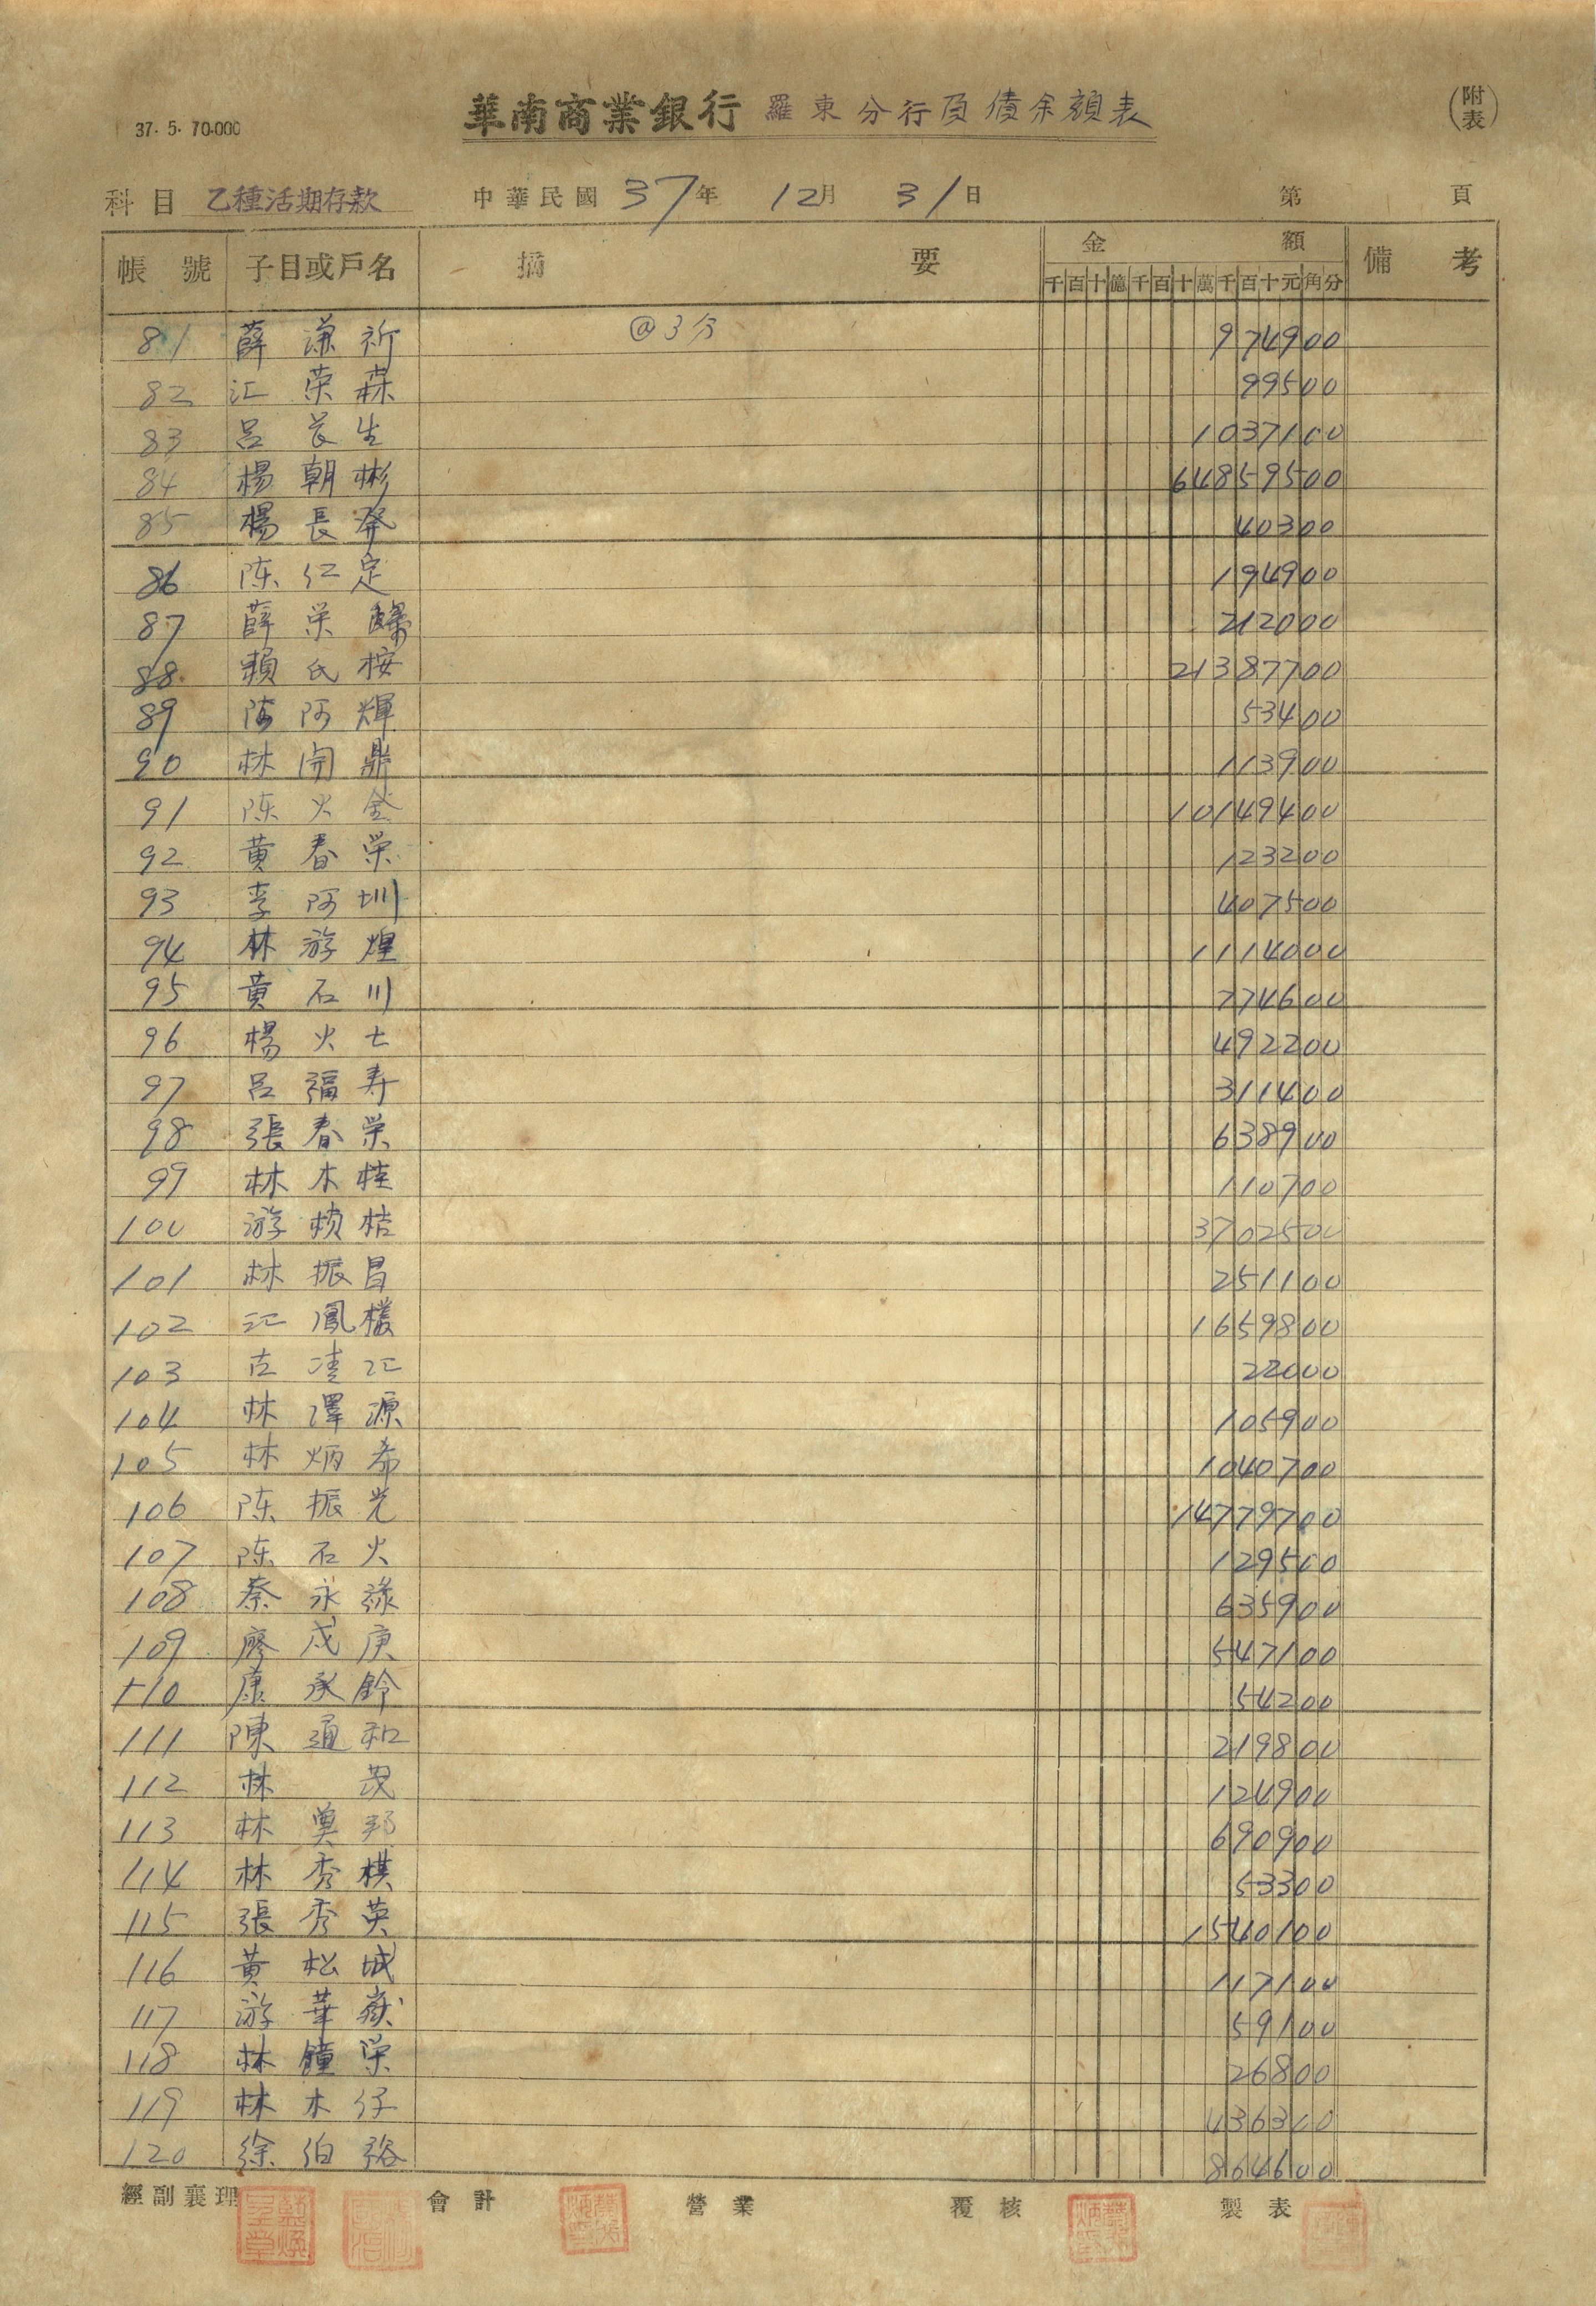 37. 5. 70.000
華南商業銀行 羅東分行負債余額表
(附表)
科目 乙種活期存款 中華民國 37年 12月 31日 第 頁
帳號 子目或戶名 摘要 金額 備考
千百十億千百十萬千百十元角分
81 薛謙祈 @3分 974900
82 江荣森 99500
83 呂長生 1037100
84 楊朝彬 64859500
85 楊長發 40300
86 陈仁定 194900
87 薛栄 212000
88 賴氏桉 21387700
89 陈阿輝 53400
90 林開鼎 113900
91 陈火金 10149400
92 黃春栄 123200
93 李阿圳 407500
94 林游煌 1114000
95 黃石川 774600
96 楊火士 492200
97 呂福寿 311400
98 張春栄 638900
99 林木桂 110700
100 游桔 3702500
101 林振昌 251100
102 江鳳 1659800
103 清江 22000
104 林澤源 105900
105 林炳希 1040700
106 陈振光 14779700
107 陈石火 129500
108 蔡永祿 635900
109 廖成庚 547100
110 康承鈴 54200
111 陳通和 219800
112 林茂 124900
113 林奠邦 690900
114 林秀棋 53300
115 張秀英 1540100
116 黃松城 117100
117 游華嶽 59100
118 林鐘栄 26800
119 林木仔 436300
120 徐伯裕 864600
經副襄理 會計 營業 覆核 製表